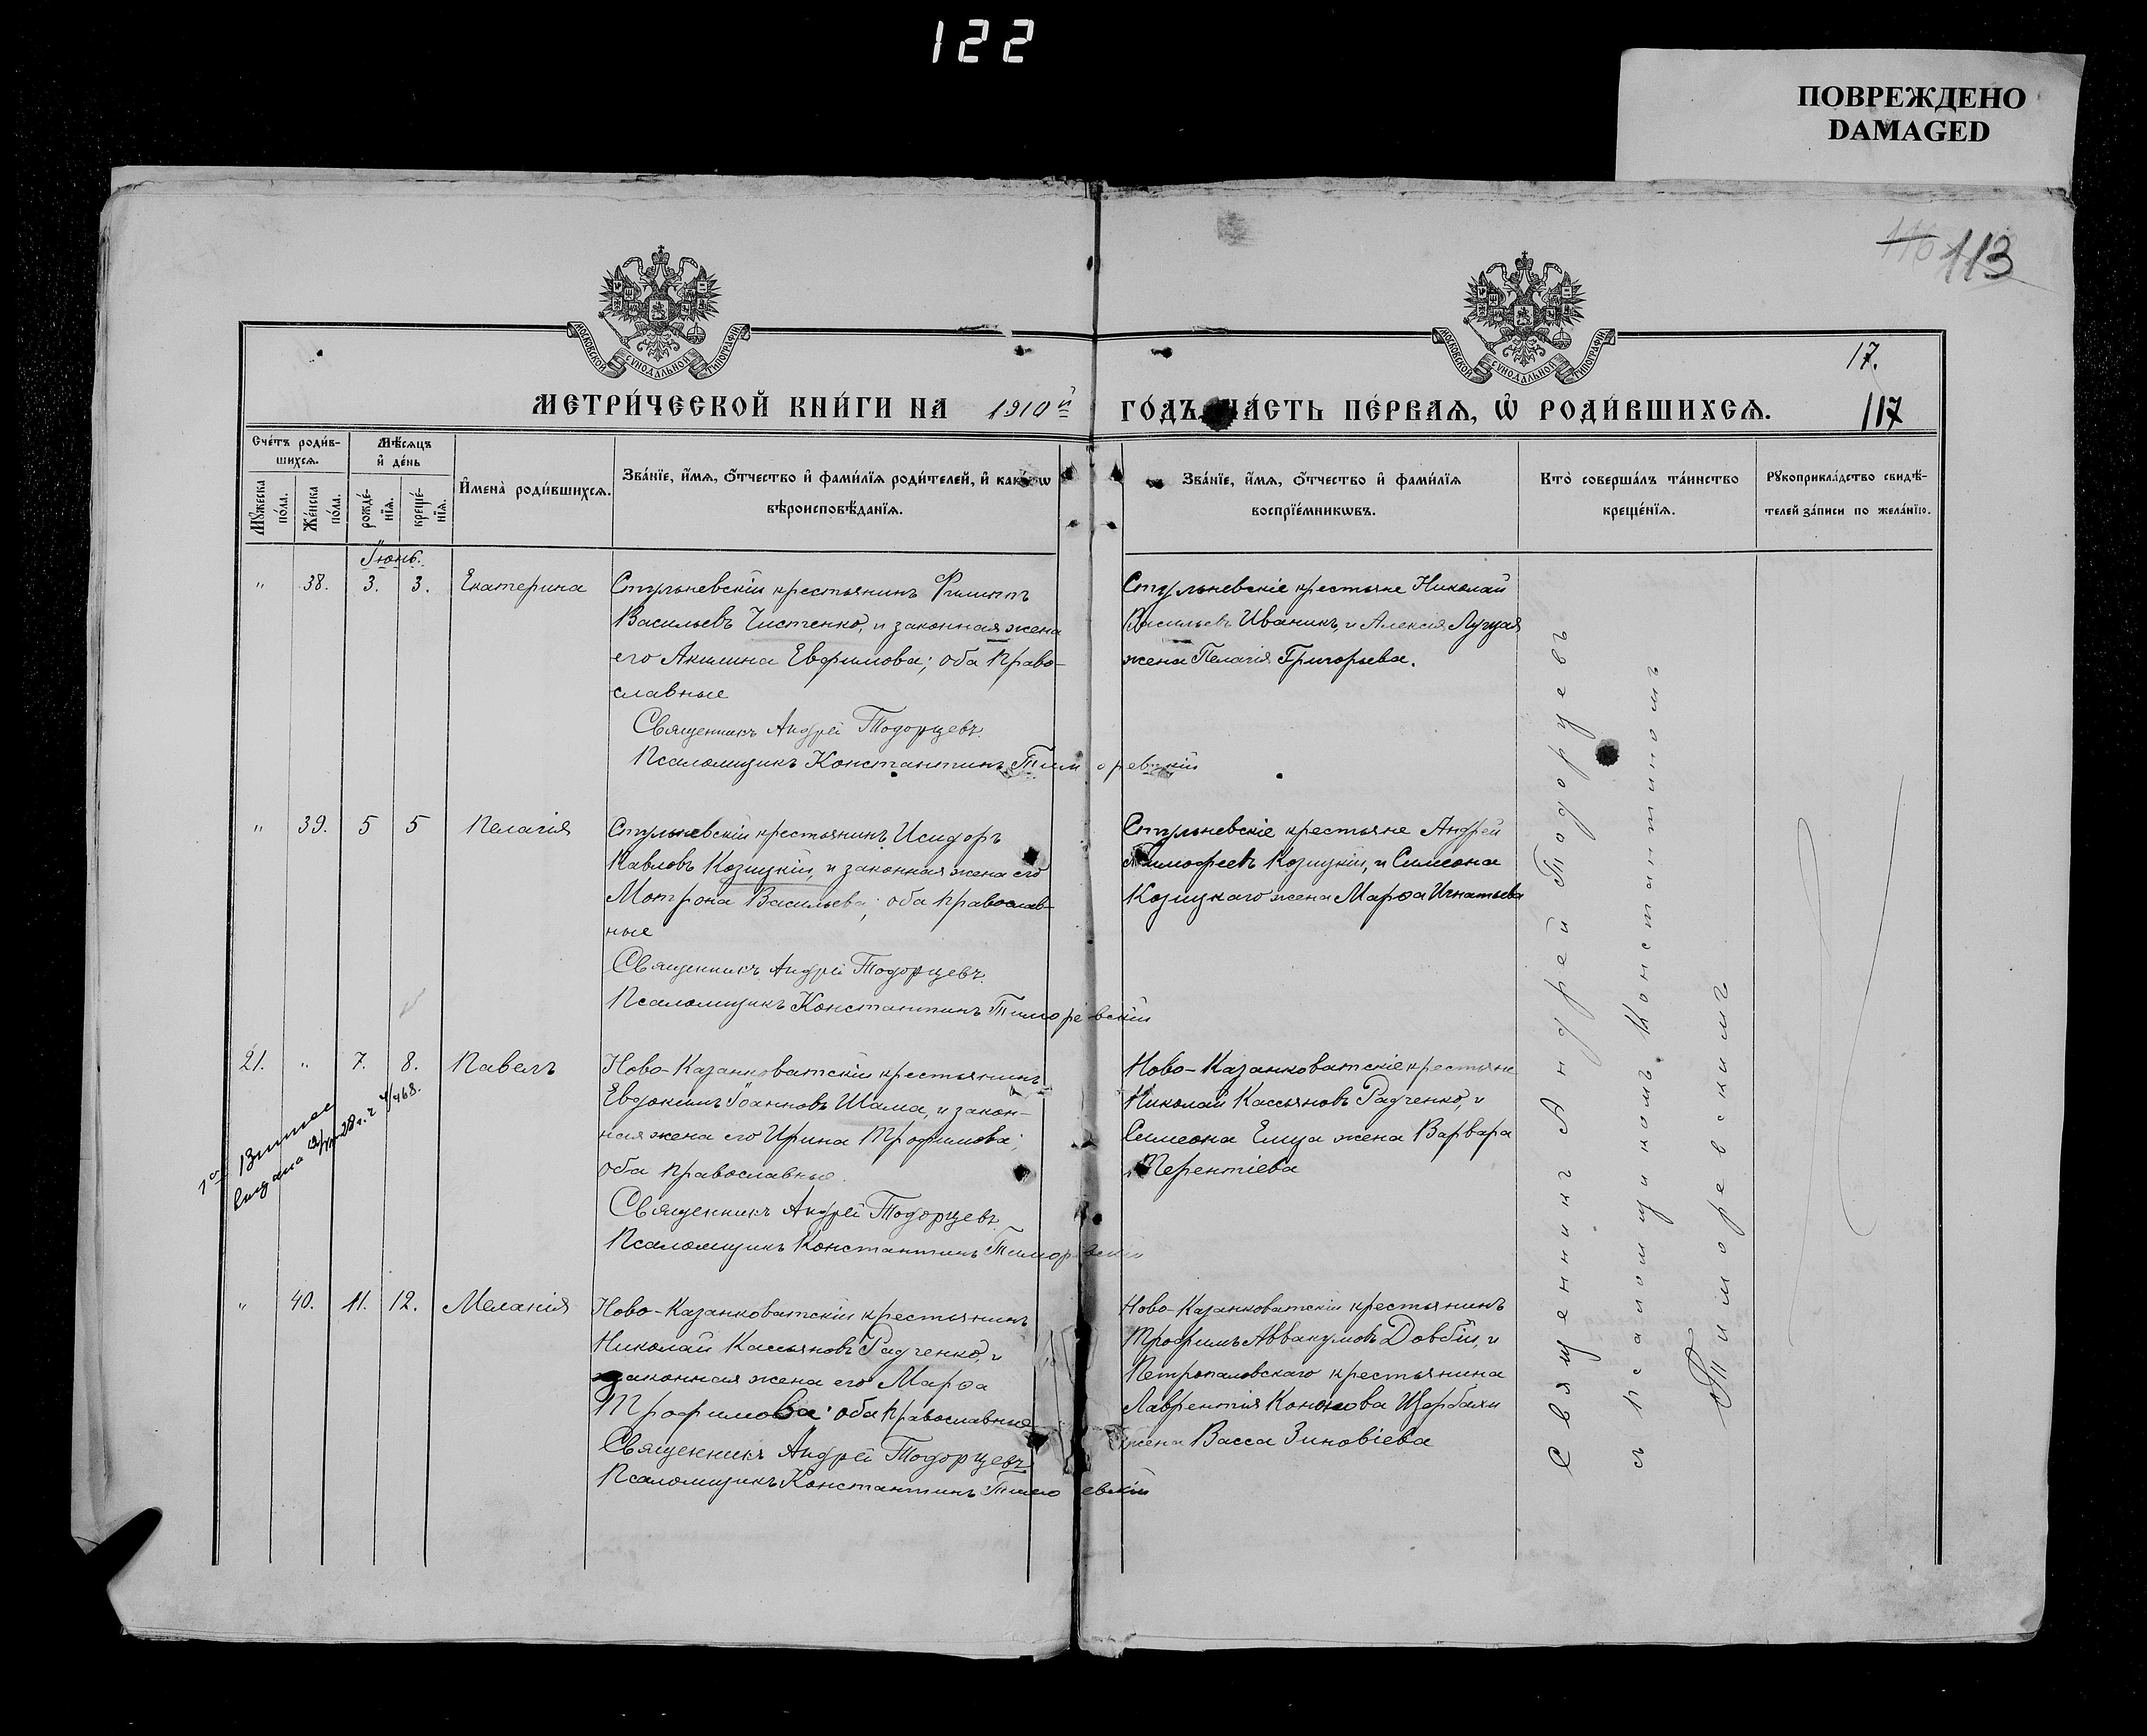 122
ПОВРЕЖДЕНО
DAMAGED
116 113
МОСКОВСКОЙ СѴНОДАЛЬНОЙ ТИПОГРАФІИ
МОСКОВСКОЙ СѴНОДАЛЬНОЙ ТИПОГРАФІИ
17.
МЕТРИ́ЧЕСКОЙ КНИ́ГИ НА 1910й ГО́ДЪ ЧА́СТЬ ПЕ́РВАѦ, Ѿ РОДИ́ВШИХСѦ.
117
Сче́тъ роди́в-
шихсѧ.
Мꙋ́жеска по́ла.
Же́нска по́ла.
Мѣ́сѧцъ
и҆ де́нь
рожде́-
нїѧ.
креще́-
нїѧ.
И҆мена̀ роди́вшихсѧ.
Зва́нїе, и҆́мѧ, ѻ҆́тчество и҆ фами́лїѧ роди́телей, и҆ како́гѡ
вѣроисповѣ́данїѧ.
Зва́нїе, и҆́мѧ, ѻ҆́тчество и҆ фами́лїѧ
воспрїе́мникѡвъ.
Кто̀ соверша́лъ та́инство
креще́нїѧ.
Рꙋкоприкла́дство свидѣ́-
телей за́писи по жела́нїю.
Іюнь.
" 38. 3. 3. Екатерина
Стульневскій крестьянинъ Филиппъ
Васильевъ Чистенко, и законная жена
его Акилина Евфимова; оба право-
славные
Священникъ Андрей Тодорцевъ.
Псаломщикъ Константинъ Тиморевскій
Стульневскіе крестьяне Николай
Васильевъ Иваникъ, и Алексія Луцая
жена Пелагія Григорьева.
" 39. 5 5 Пелагія
Стульневскій крестьянинъ Исидоръ
Павловъ Козицкій, и законная жена его
Мотрона Васильева; оба православ-
ные
Священникъ Андрей Тодорцевъ.
Псаломщикъ Константинъ Тиморевскій
Стульневскіе крестьяне Андрей
Тимофеевъ Козицкій, и Симеона
Козицкаго жена Марѳа Игнатьева
21. " 7. 8. Павелъ
Ново-Казанковатскій крестьянинъ
Евдокимъ Іоанновъ Шама, и закон-
ная жена его Ирина Трофимова;
оба православные.
Священникъ Андрей Тодорцевъ.
Псаломщикъ Константинъ Тиморевскій
Ново-Казанковатскіе крестьяне
Николай Кассьяновъ Радченко, и
Симеона Емца жена Варвара
Терентіева
" 40. 11. 12. Меланія
Ново-Казанковатскій крестьянинъ
Николай Кассьяновъ Радченко, и
законная жена его Марѳа
Трофимова; оба православные
Священникъ Андрей Тодорцевъ
Псаломщикъ Константинъ Тиморевскій
Ново-Казанковатскій крестьянинъ
Трофимъ Аввакумовъ Довбій, и
Петропаловскаго крестьянина
Лаврентія Кононова Щербахи
жена Васса Зиновіева
Священникъ Андрей Тодорцевъ
съ псаломщикомъ Константиномъ
Тиморевскимъ